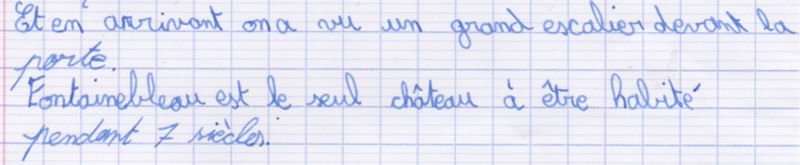 Et en arrivant on a vu un grand escalier devant la
porte.
Fontainebleau est le seul château à être habité
pendant 7 siècles.